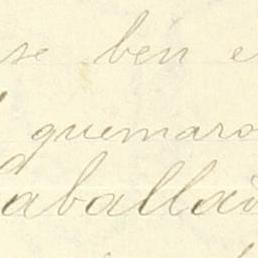 se ben e
quemaro
aballad